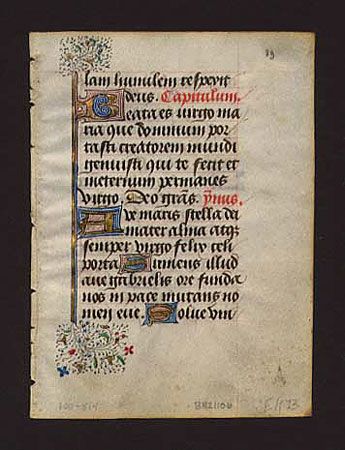 19
lam humilem respexit
deus. Capitulum.
Beata es virgo ma
ria que dominum por
tasti creatorem mundi
genuisti qui te fecit et
in eternum permanes
virgo. Deo grās. ymnus.
Ave maris stella dei
mater alma atq;
semper virgo felix celi
porta Sumens illud
ave gabrielis ore funda
nos in pace mutans no
men eve. Solve vin